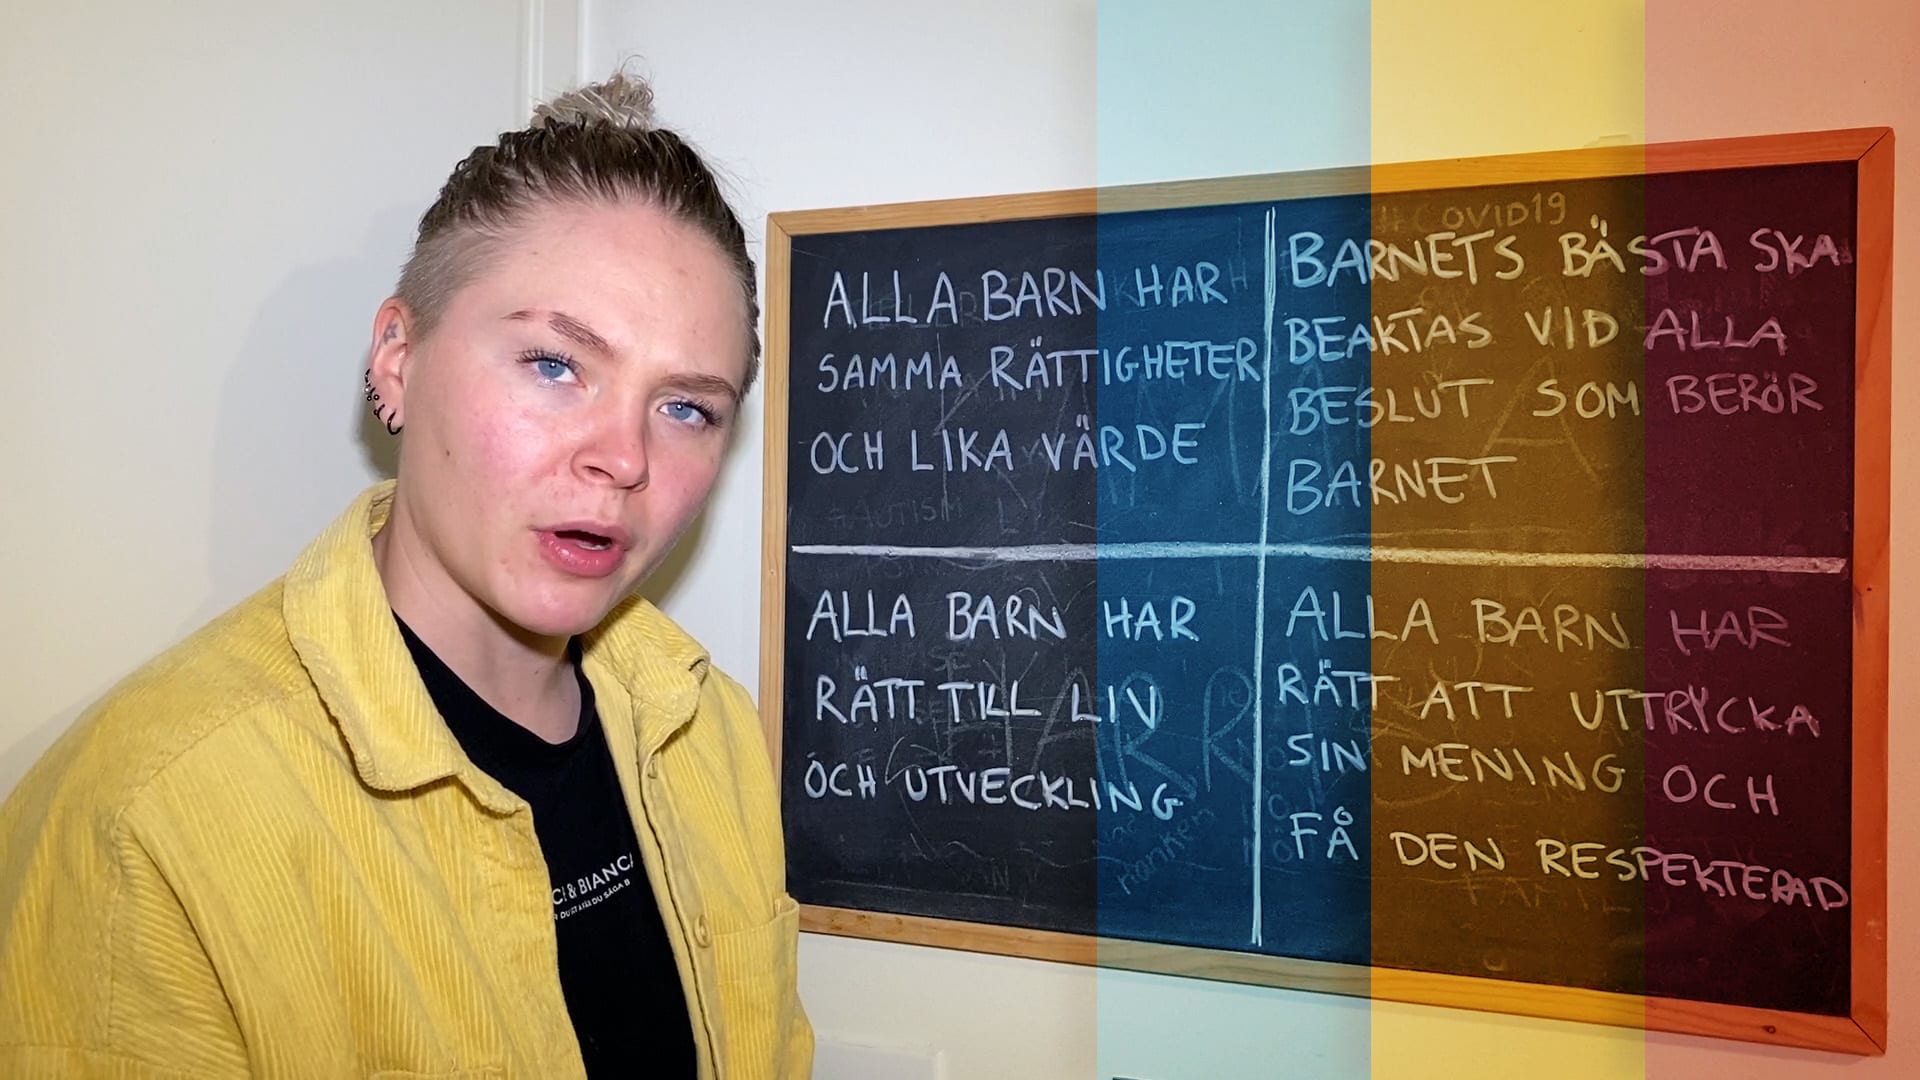 #COVID19
ALLA BARN HAR
SAMMA RÄTTIGHETER
OCH LIKA VÄRDE
#AUTISM
BARNETS BÄSTA SKA
BEAKTAS VID ALLA
BESLUT SOM BERÖR
BARNET
ALLA BARN HAR
RÄTT TILL LIV
OCH UTVECKLING
ALLA BARN HAR
RÄTT ATT UTTRYCKA
SIN MENING OCH
FÅ DEN RESPEKTERAD
& BIANCA
DU SÅGA